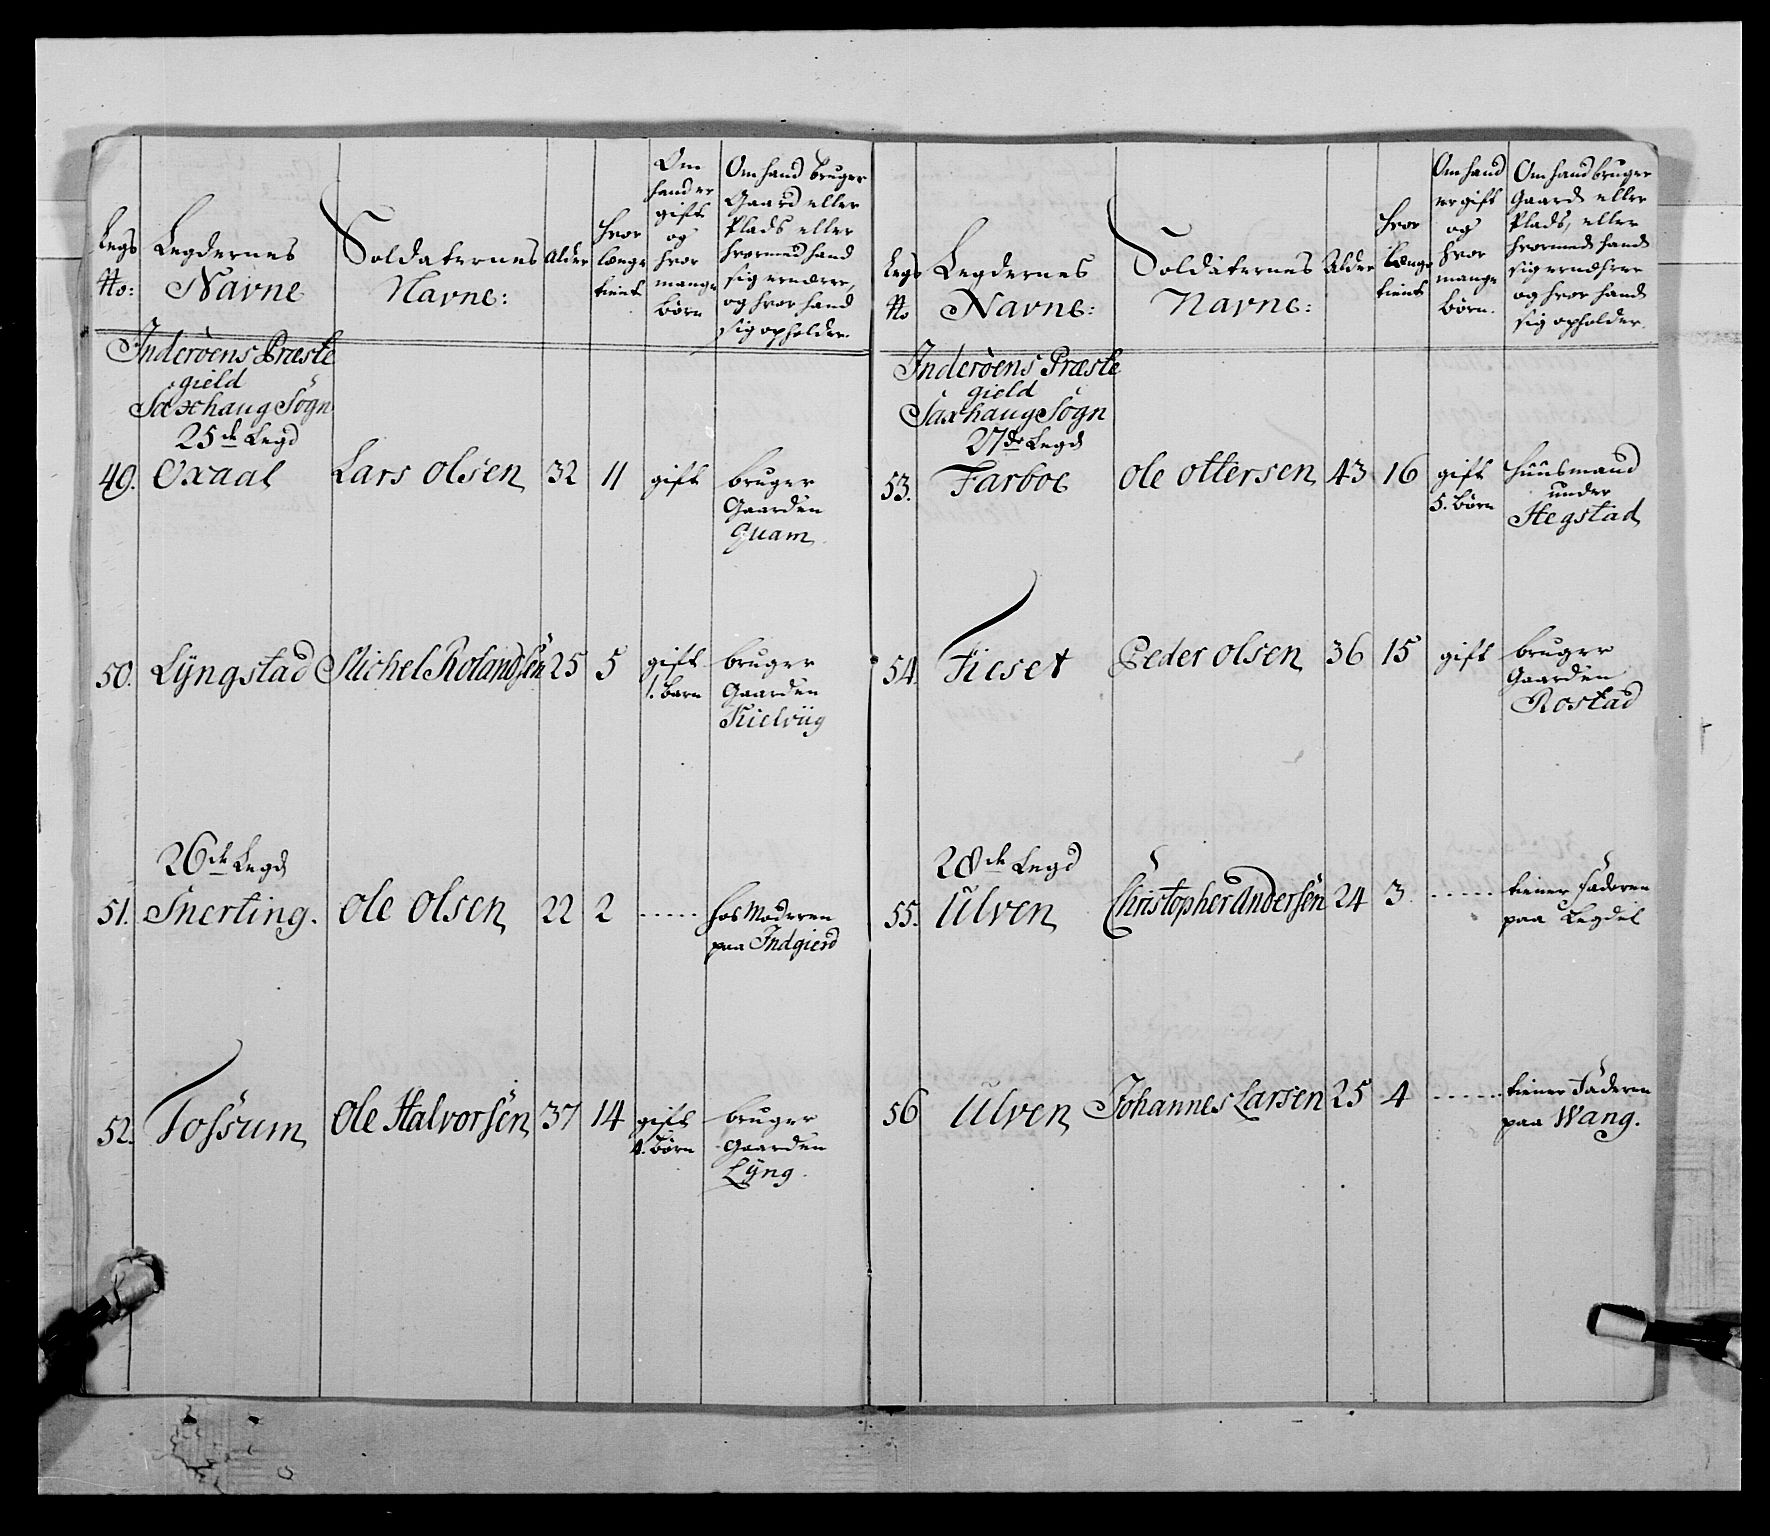 Legs No: Legdernes Navne Soldaternes Navne: Alder hvor længe tient Om hand er gift og hvor mange börn Om hand bruger Gaard eller Plads eller hvormed hand sig ernærer, og hvor hand sig opholder.
Inderöens Præste
gield
Saxhaug Sögn
25de Legd
49. Oxaal Lars Olsen 32 11 gift bruger
Gaarden
Quam
50. Lÿngstad Michel Rolandsen 25 5 gift bruger
1. barn Gaarden
Kielviig
26de Legd
51. Snerting. Ole Olsen 22 2 ..... hos Moderen
paa Indgierd
52. Fossum Ole Halvorsen 37 14 gift bruger
4. börn Gaarden
Lÿng
Legs No Legdernes Navne: Soldaternes Navne: Alder hvor længe tient Om hand er gift og hvor mange börn. Om hand bruger Gaard eller Plads, eller hvormed hand sig ernærer og hvor hand sig opholder.
Inderöens Præste
gield
Saxhaug Sogn
27de Legd
53. Farboe Ole Ottersen 43 16 gift Huusmand
5. börn under
Hegstad
54. Fieset Peder Olsen 36 15 gift bruger
Gaarden
Rostad
28de Legd
55. Ulven Christopher Andersen 24 3 ...... tiener Faderen
paa Legdel
56 Ulven Johannes Larsen 25 4 ...... tiener Faderen
paa Wang.